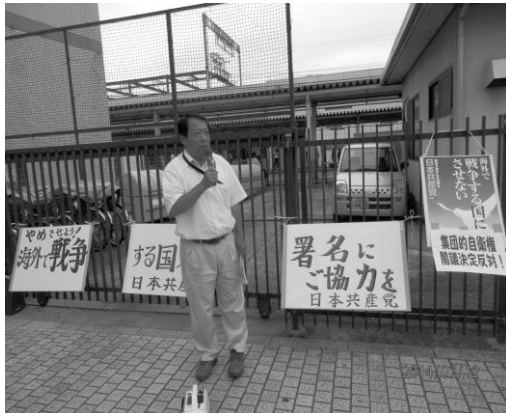 やめさせよう!
海外で戦争
する国
日本共産
署名に
ご協力を
日本共産党
海外で
戦争する国に
させない
日本共産党
集団的自衛権
閣議決定反対!